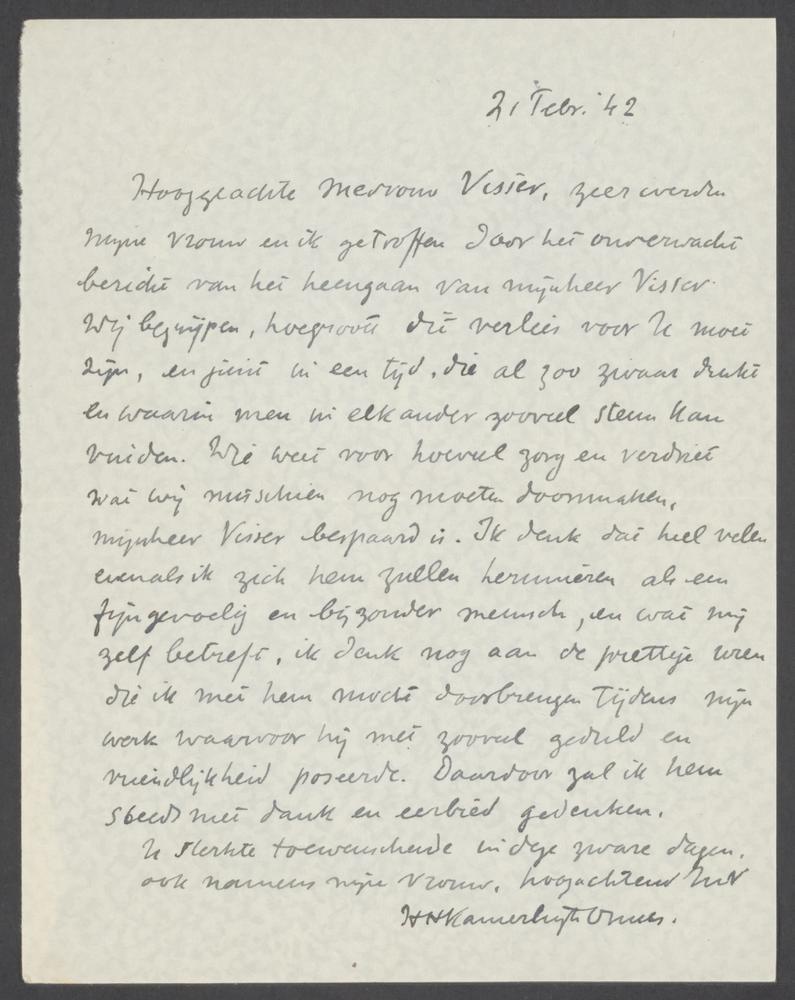 21 Febr. '42
Hooggeachte Mevrouw Visser, zeer werden
mijne vrouw en ik getroffen door het onverwacht
bericht van het heengaan van mijnheer Visser.
Wij begrijpen, hoegroot dit verlies voor U moet
zijn, en juist in een tijd, die al zoo zwaar drukt
en waarin men in elkander zooveel steun kan
vinden. Wie weet voor hoeveel zorg en verdriet
wat wij misschien nog moeten doormaken,
mijnheer Visser bespaard is. Ik denk dat heel velen
evenals ik zich hem zullen herinneren als een
fijngevoelig en bijzonder mensch, en wat mij
zelf betreft, ik denk nog aan de prettige uren
die ik met hem mocht doorbrengen tijdens mijn
werk waarvoor hij met zooveel geduld en
vriendlijkheid poseerde. Daardoor zal ik hem
steeds met dank en eerbied gedenken.
U sterkte toewenschende in deze zware dagen,
ook namens mijne vrouw, hoogachtend
HHKamerlingh Onnes.